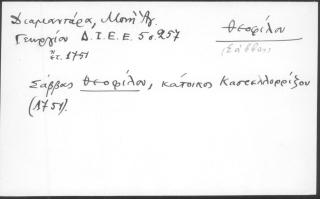 Διαμαντάρα, Μονὴ Ἁγ.
Γεωργίου Δ.Ι.Ε.Ε. 5σ.257
ἔτ. 1751
Θεοφίλου
(Σάββας)
Σάββας Θεοφίλου, κάτοικος Καστελλορρίζου
(1751).